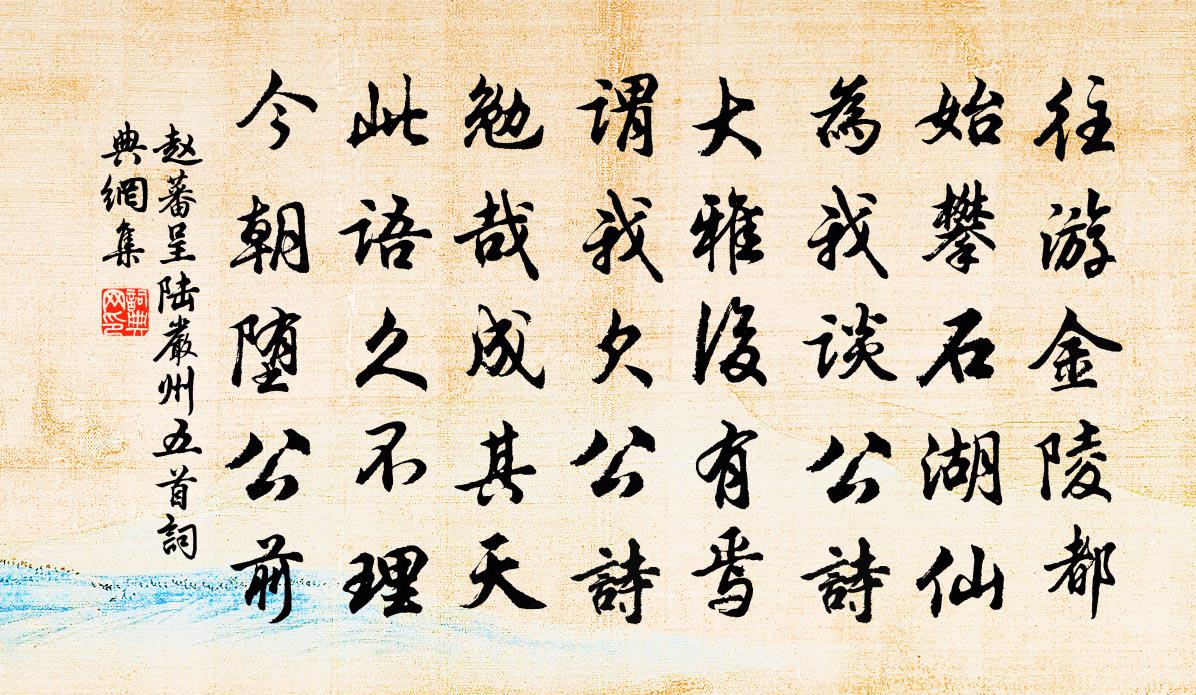 往游金陵都
始攀石湖仙
為我談公詩
大雅復有焉
谓我欠公詩
勉哉成其天
此語久不理
今朝堕公前
赵蕃呈陆嚴州五首詞
典網集
詞典
网印